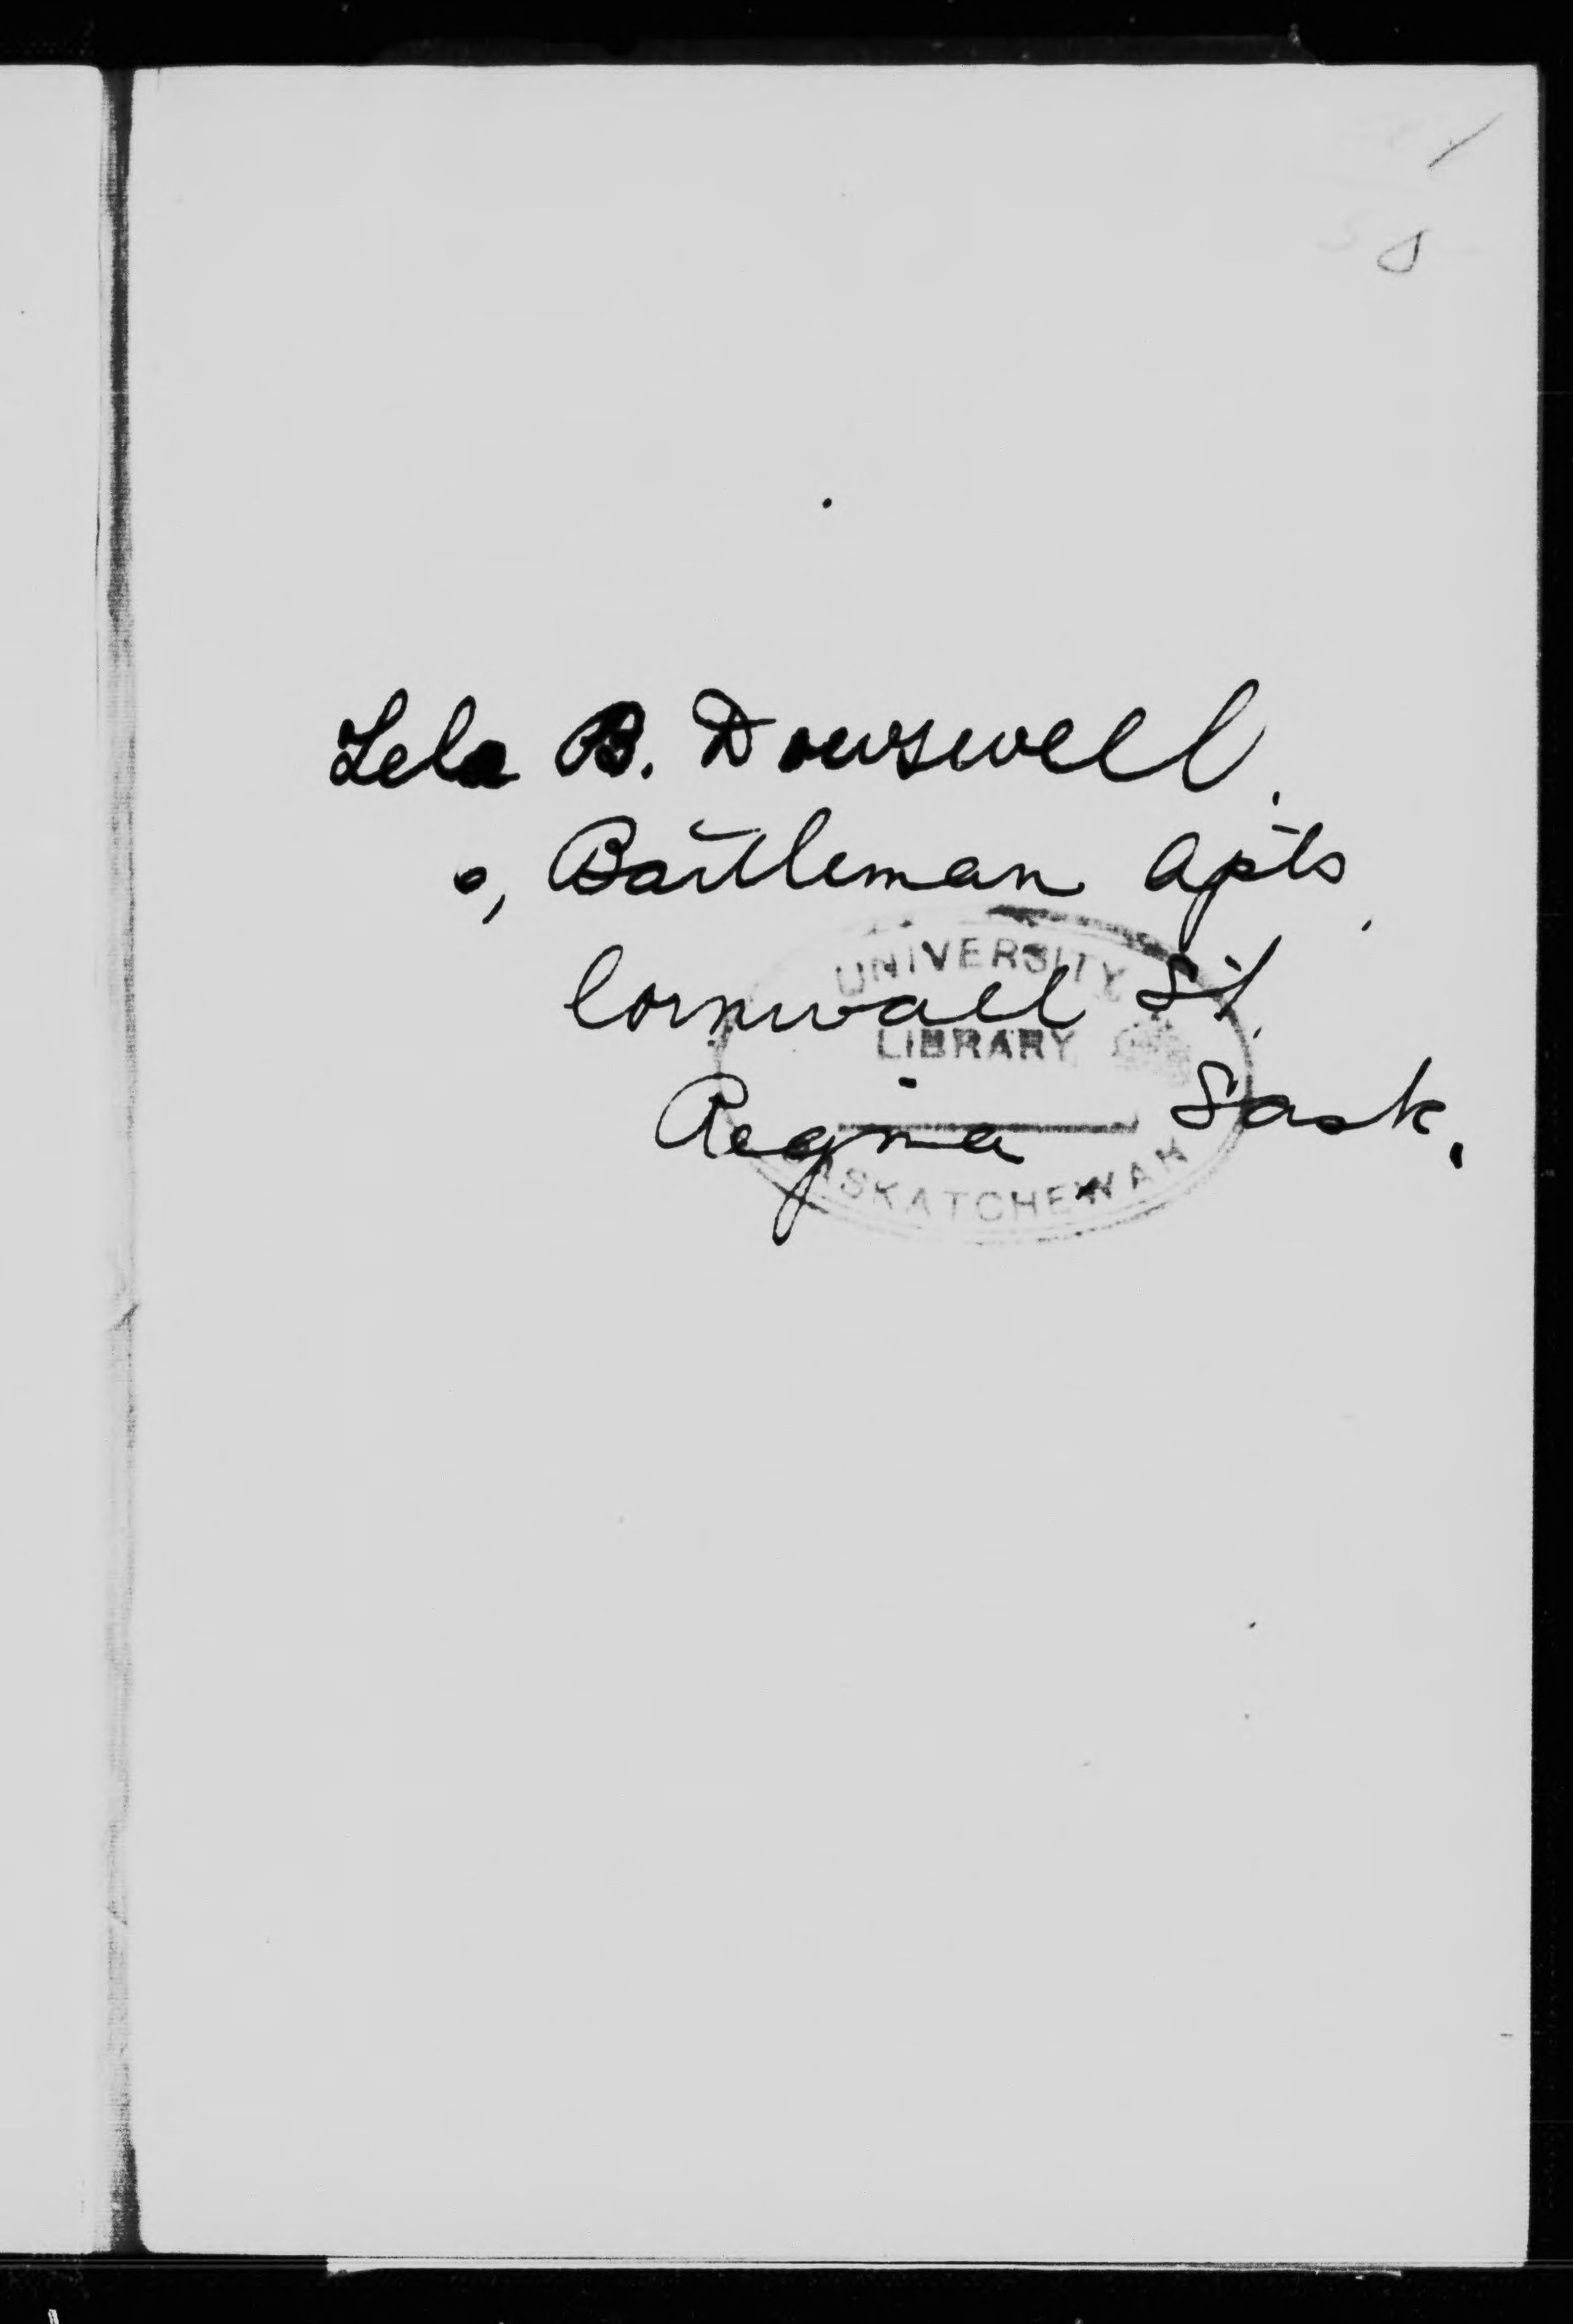 Lela B. Dowswell.
o, Bartleman Apts,
Cornwall St.
Regina Sask.
UNIVERSITY
LIBRARY
SASKATCHEWAN